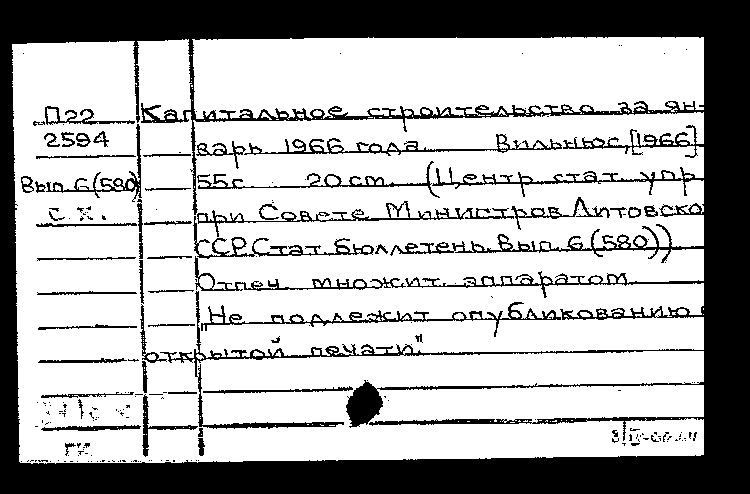 П22 Капитальное строительство за ян-
2594 варь 1966 года. Вильнюс,[1966]
Вып. 6(580) 55с 20 см. (Центр. стат. упр
с. х. при Совете Министров Литовско
ССР. Стат. бюллетень. Вып. 6(580))
Отпеч. множит. аппаратом
"Не подлежит опубликованию в
открытой печати."
ГК